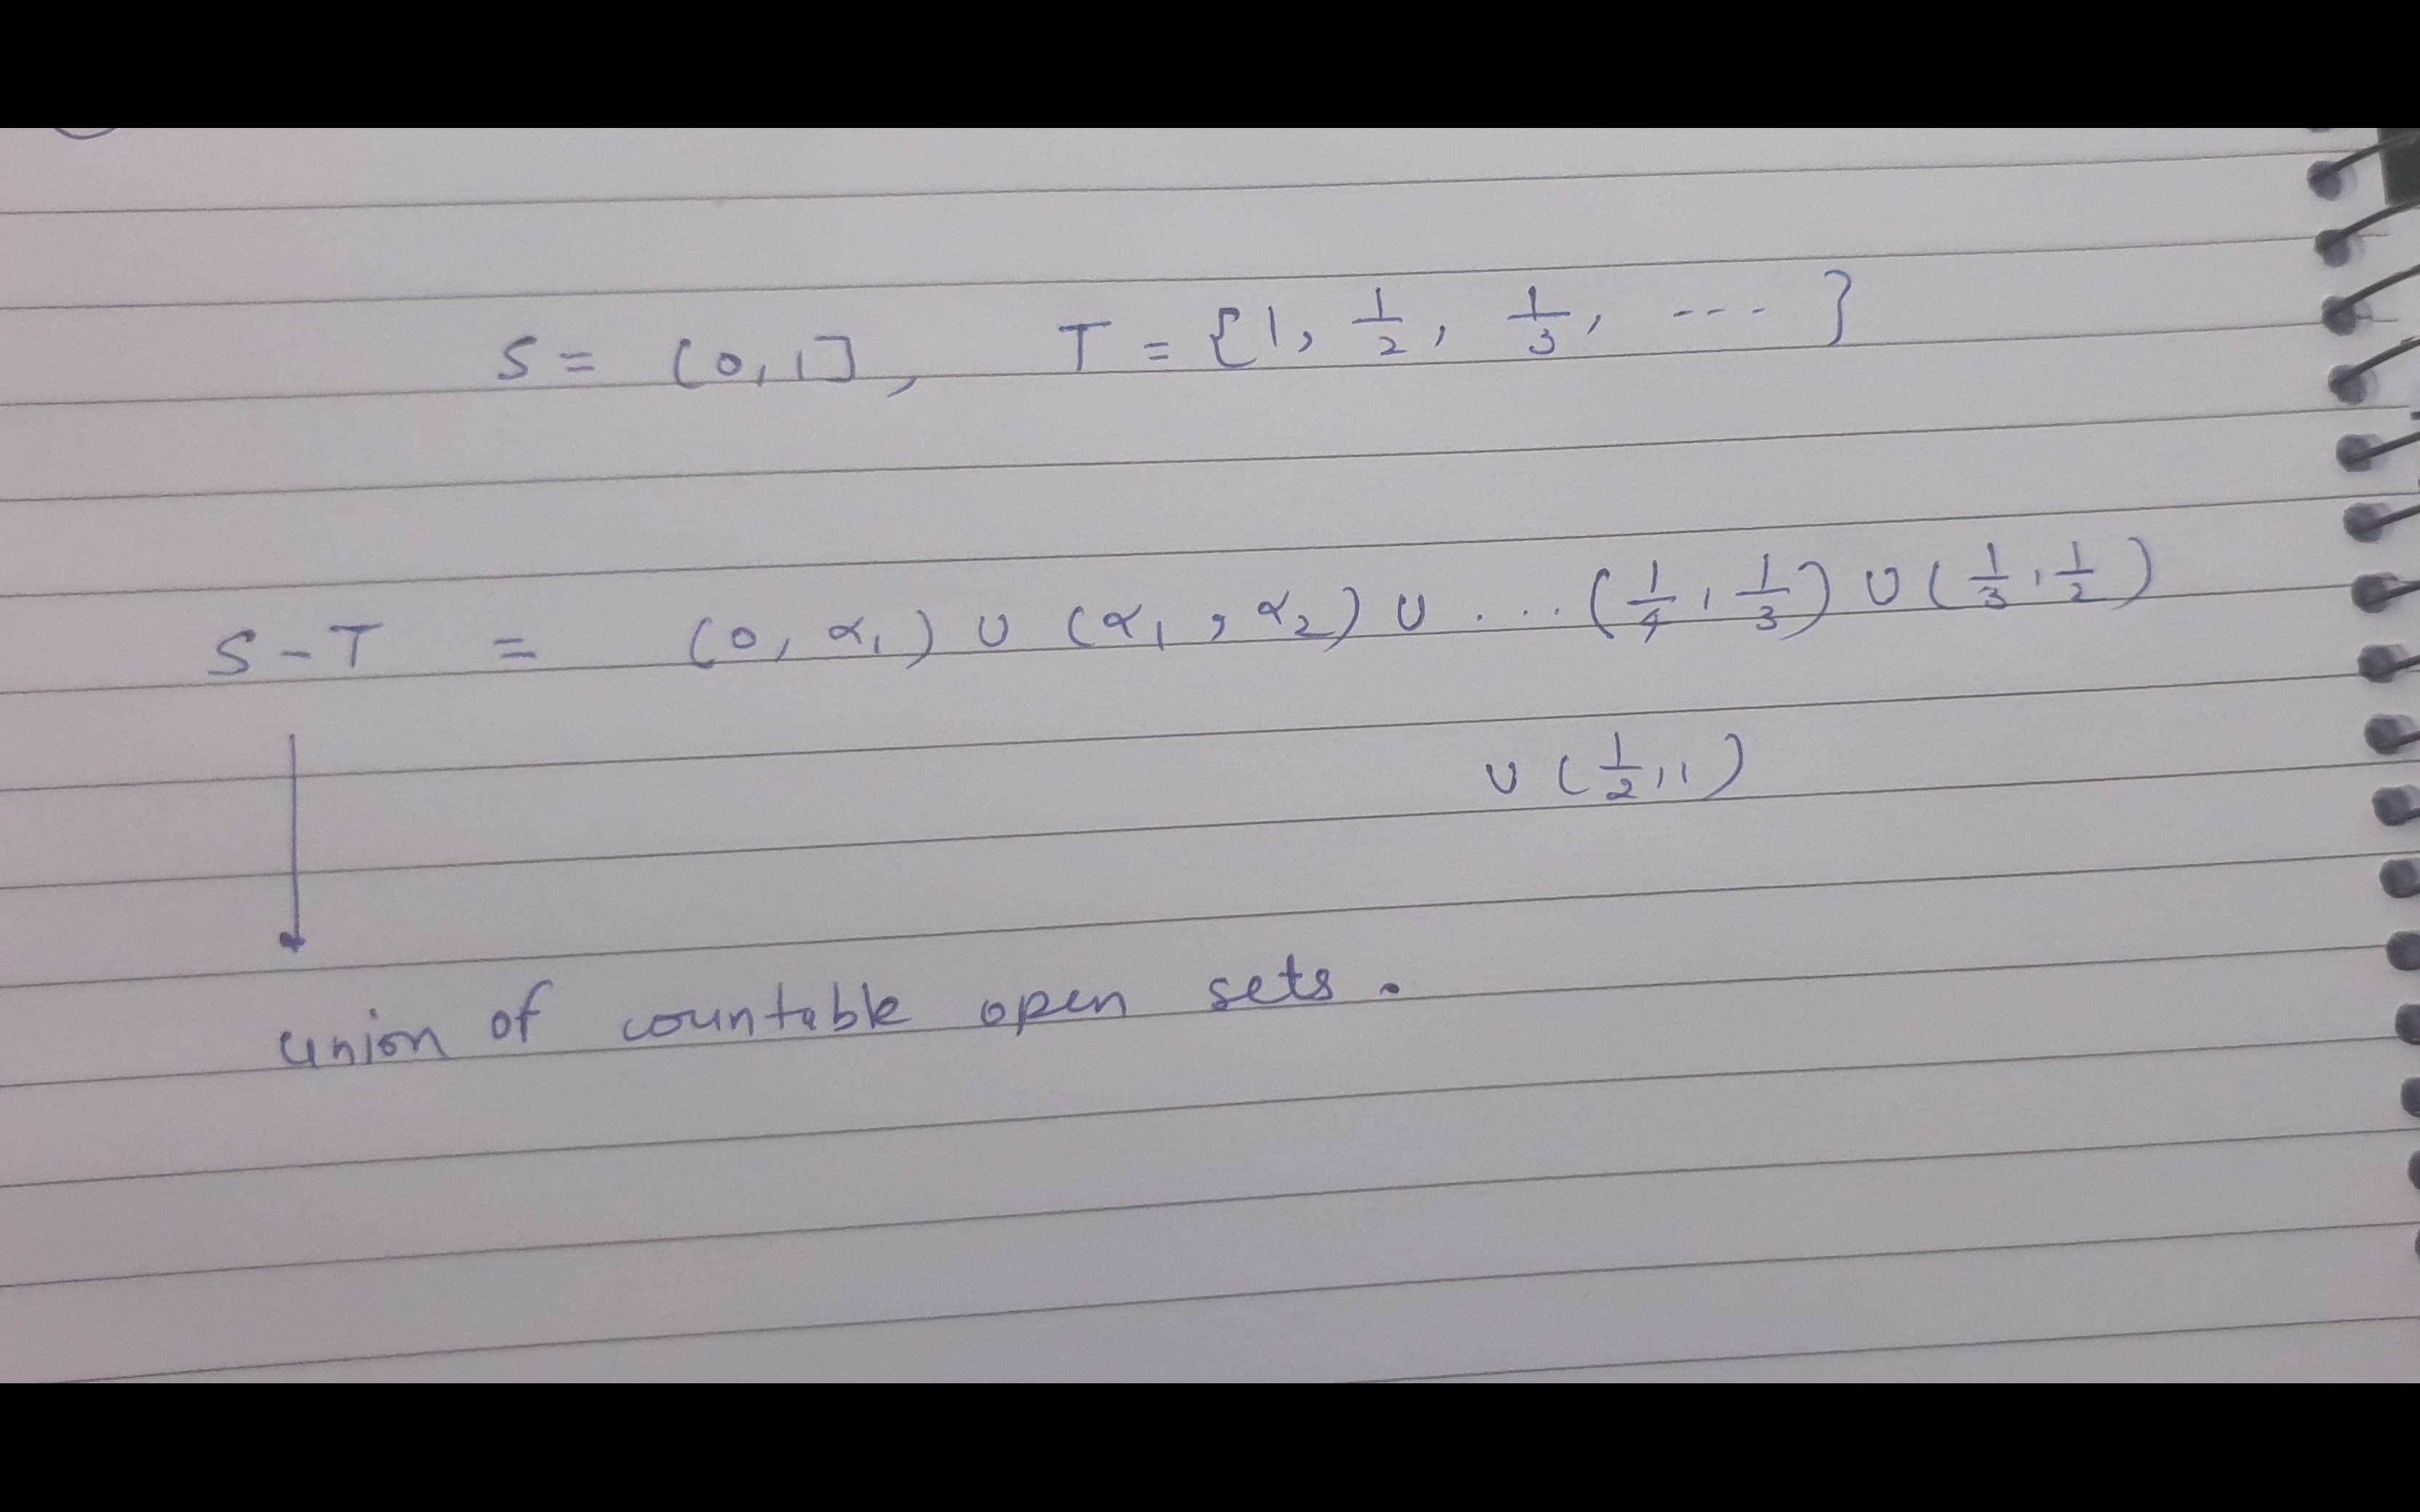 S = (0,1], T = {1, 1/2, 1/3, --- }
S-T = (0, α₁) ∪ (α₁, α₂) ∪ .... (1/4, 1/3) ∪ (1/3, 1/2)
∪ (1/2, 1)
union of countable open sets.